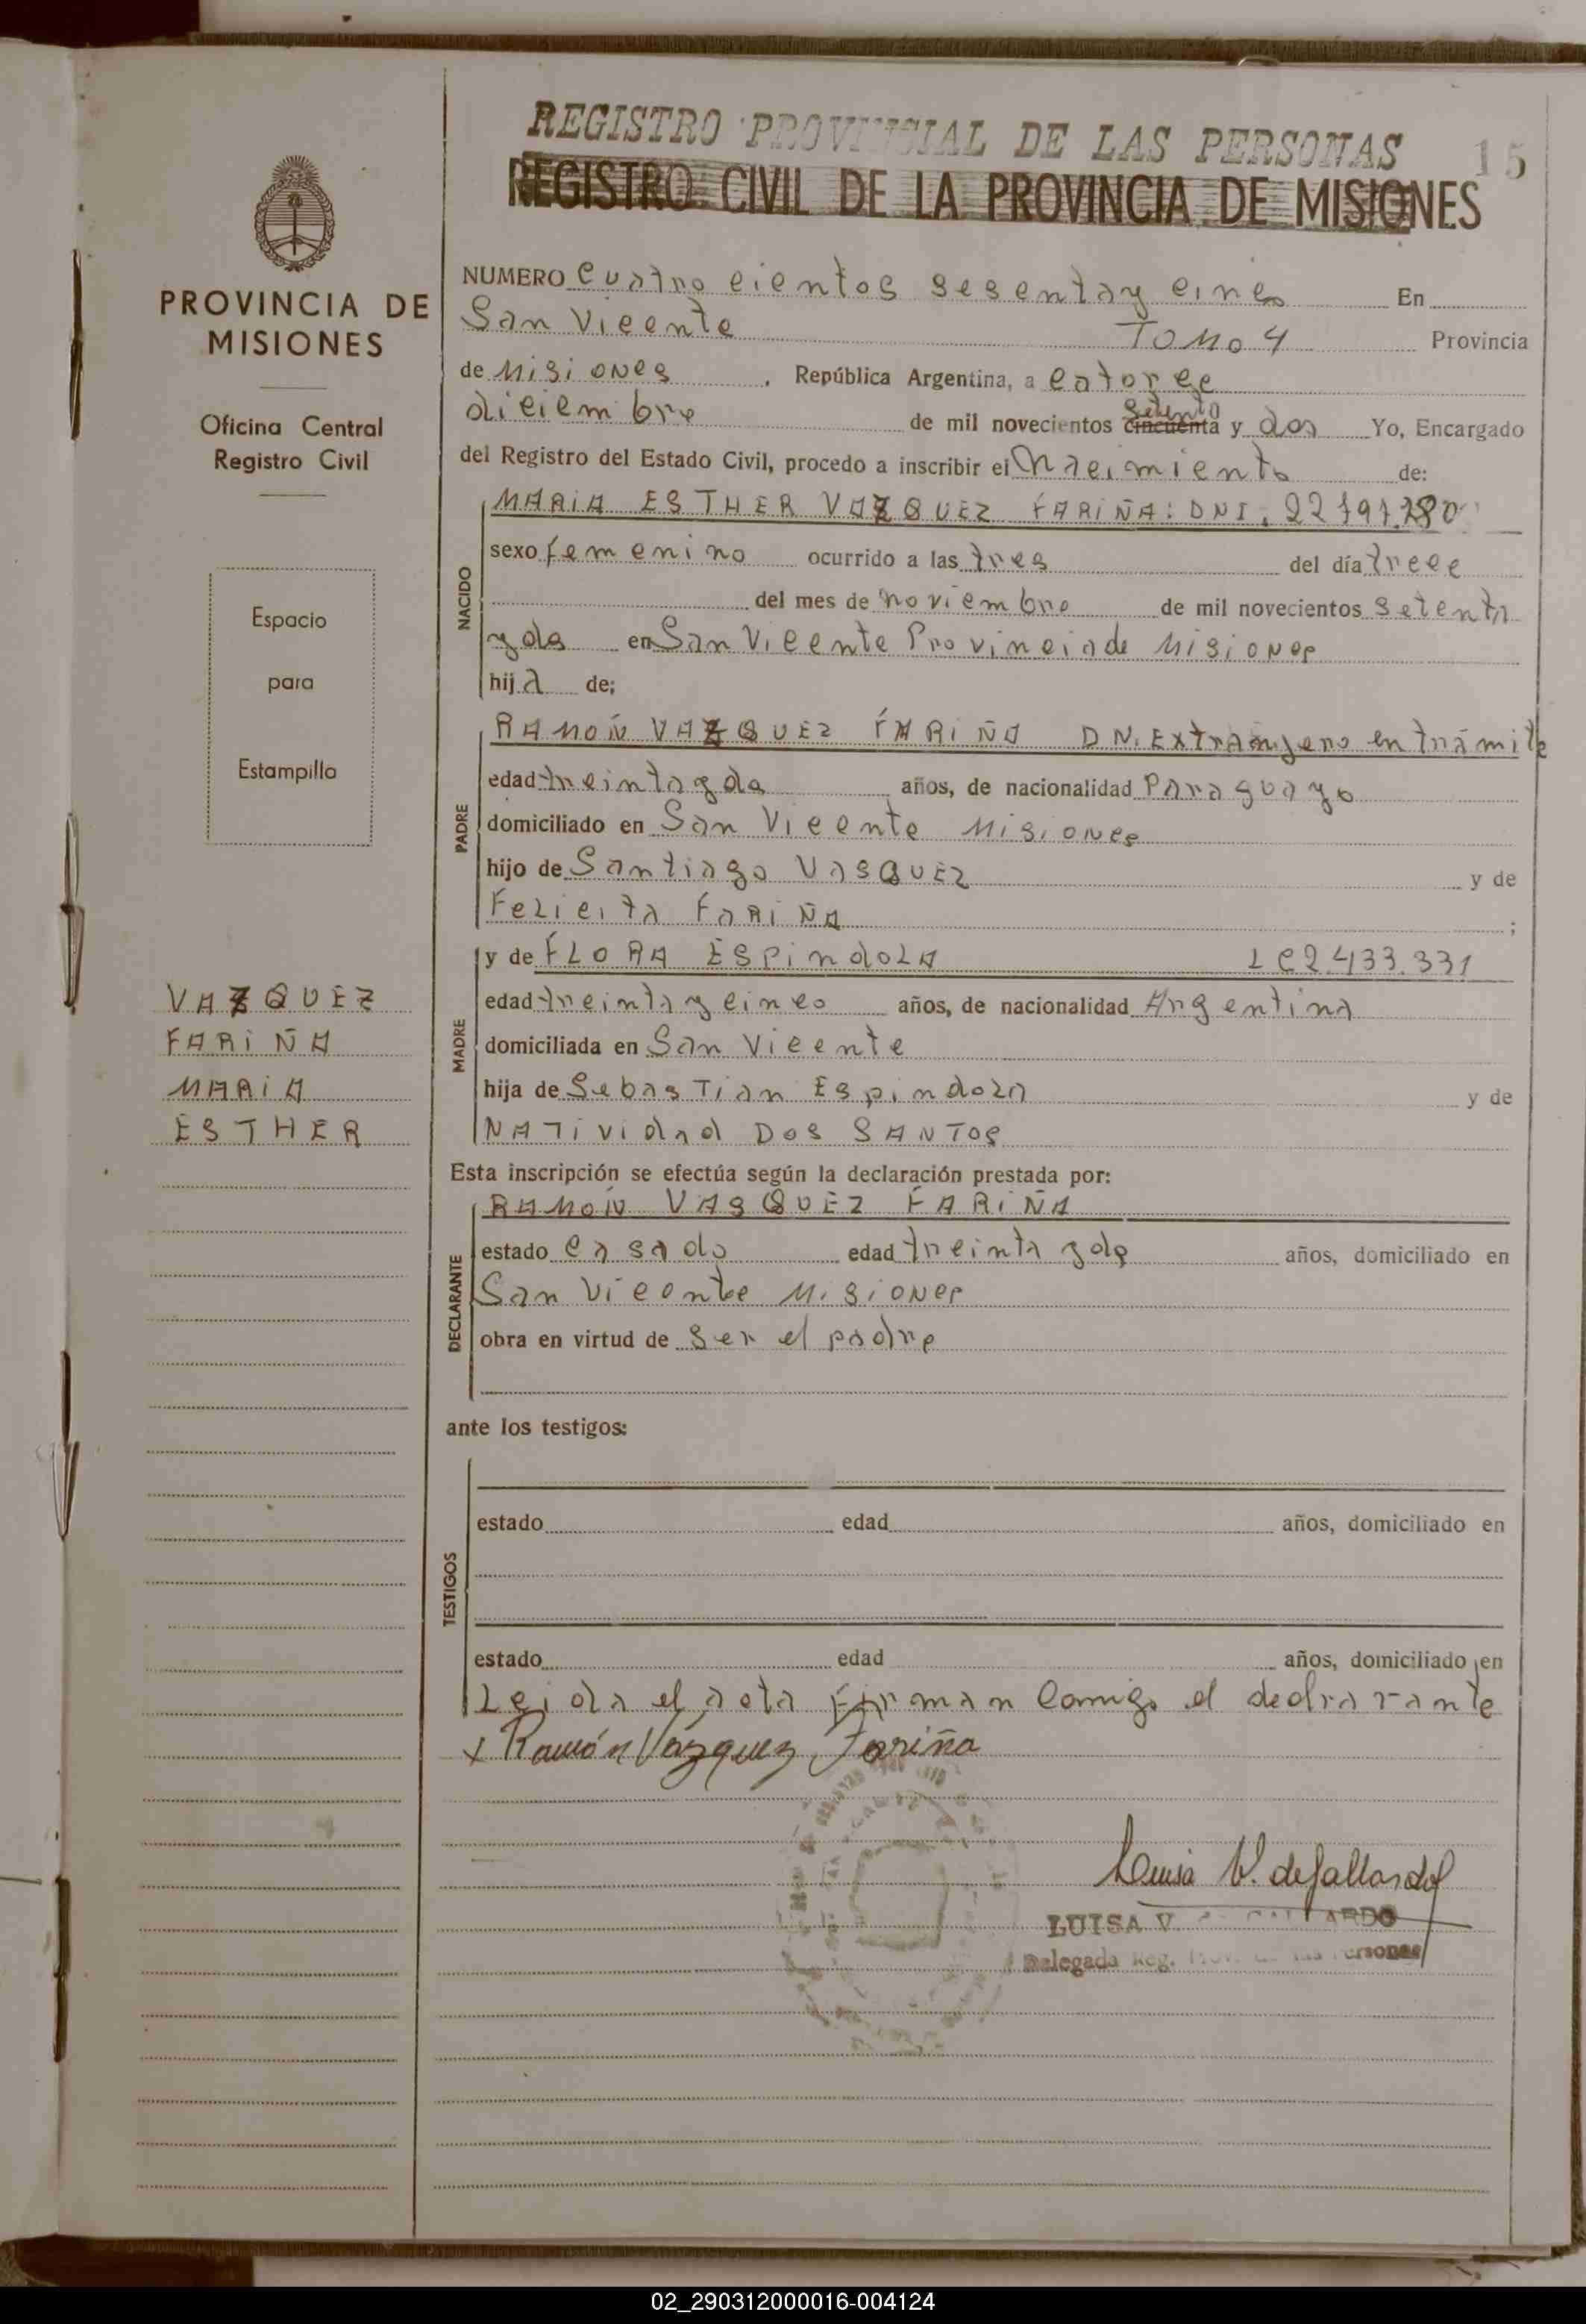 REGISTRO PROVINCIAL DE LAS PERSONAS 15
REGISTRO CIVIL DE LA PROVINCIA DE MISIONES
PROVINCIA DE
MISIONES
Oficina Central
Registro Civil
Espacio
para
Estampilla
VAZQUEZ
FARIÑA
MARIA
ESTHER
NUMERO Cuatro cientos sesenta y cinco En
San Vicente TOMO 4 Provincia
de Misiones, República Argentina, a catorce
diciembre de mil novecientos setenta cincuenta y dos Yo, Encargado
del Registro del Estado Civil, procedo a inscribir el Nacimiento de:
NACIDO
MARIA ESTHER VAZQUEZ FARIÑA: DNI.
sexo femenino ocurrido a las tres del día trece
del mes de noviembre de mil novecientos setenta
y dos en San Vicente Provincia de Misiones
hija de;
PADRE
RAMÓN VAZQUEZ FARIÑA D.N. Extranjero en trámite
edad treinta y dos años, de nacionalidad Paraguayo
domiciliado en San Vicente Misiones
hijo de Santiago VASQUEZ y de
Felicita FARIÑA ;
MADRE
y de FLORA ESPINDOLA LC 2.433.331
edad treinta y cinco años, de nacionalidad Argentina
domiciliada en San Vicente
hija de Sebastian Espindola y de
NATIVIDAD DOS SANTOS
Esta inscripción se efectúa según la declaración prestada por:
DECLARANTE
RAMÓN VASQUEZ FARIÑA
estado casado edad treinta y dos años, domiciliado en
San Vicente Misiones
obra en virtud de ser el padre
ante los testigos:
TESTIGOS
estado edad años, domiciliado en
estado edad años, domiciliado en
Leida el acta firman conmigo el declarante
x Ramón Vázquez Fariña
Luisa V. de Gallardo
LUISA V. DE GALLARDO
Delegada Reg. Prov. de las Personas
02_290312000016-004124